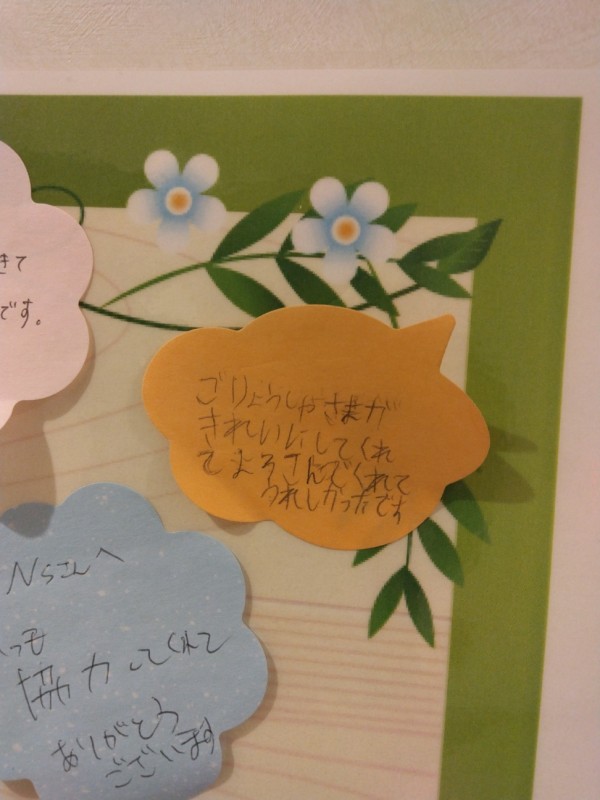 きて
です。
ごりょうしゃさまが
きれいにしてくれ
てよろこんでくれて
うれしかったです
Nsさんへ
いつも
協力してくれて
ありがとう
ございます